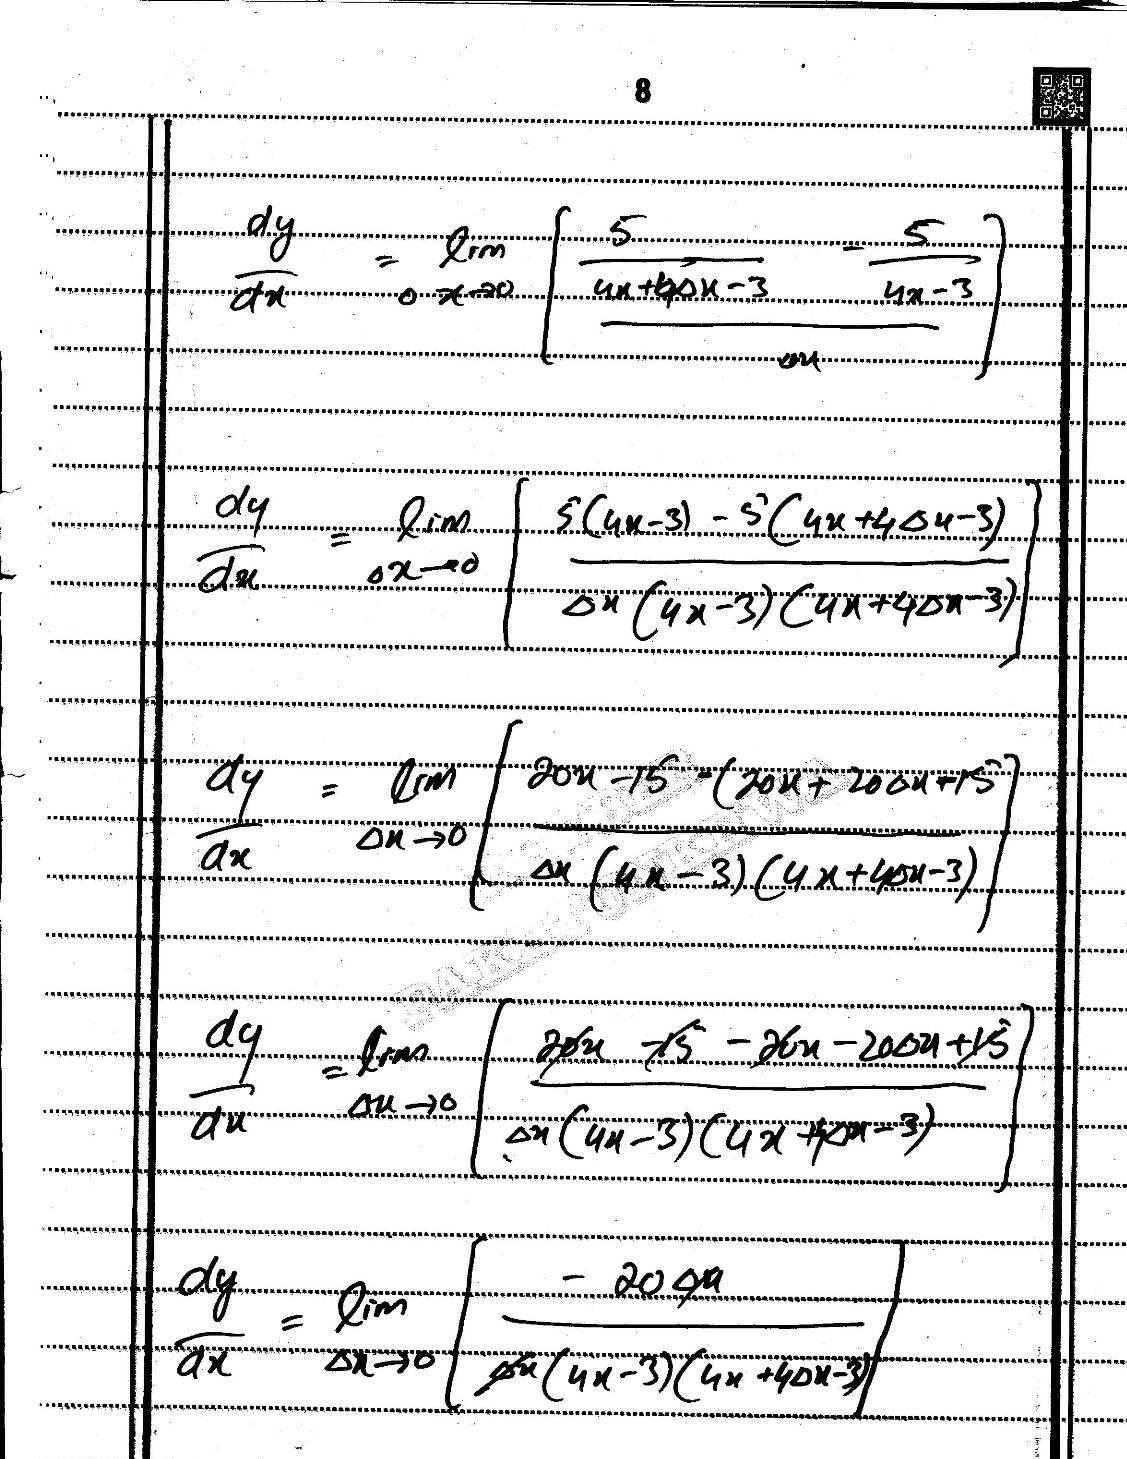 8
dy/dx = lim Δx→0 [ (5/(4x+4Δx-3) - 5/(4x-3)) / Δx ]
dy/dx = lim Δx→0 [ (5(4x-3) - 5(4x+4Δx-3)) / (Δx(4x-3)(4x+4Δx-3)) ]
dy/dx = lim Δx→0 [ (20x-15 -(20x+20Δx+15) / (Δx(4x-3)(4x+4Δx-3)) ]
dy/dx = lim Δx→0 [ (20x -15 -20x -20Δx +15) / (Δx(4x-3)(4x+4Δx-3)) ]
dy/dx = lim Δx→0 [ (-20Δx) / (Δx(4x-3)(4x+4Δx-3)) ]